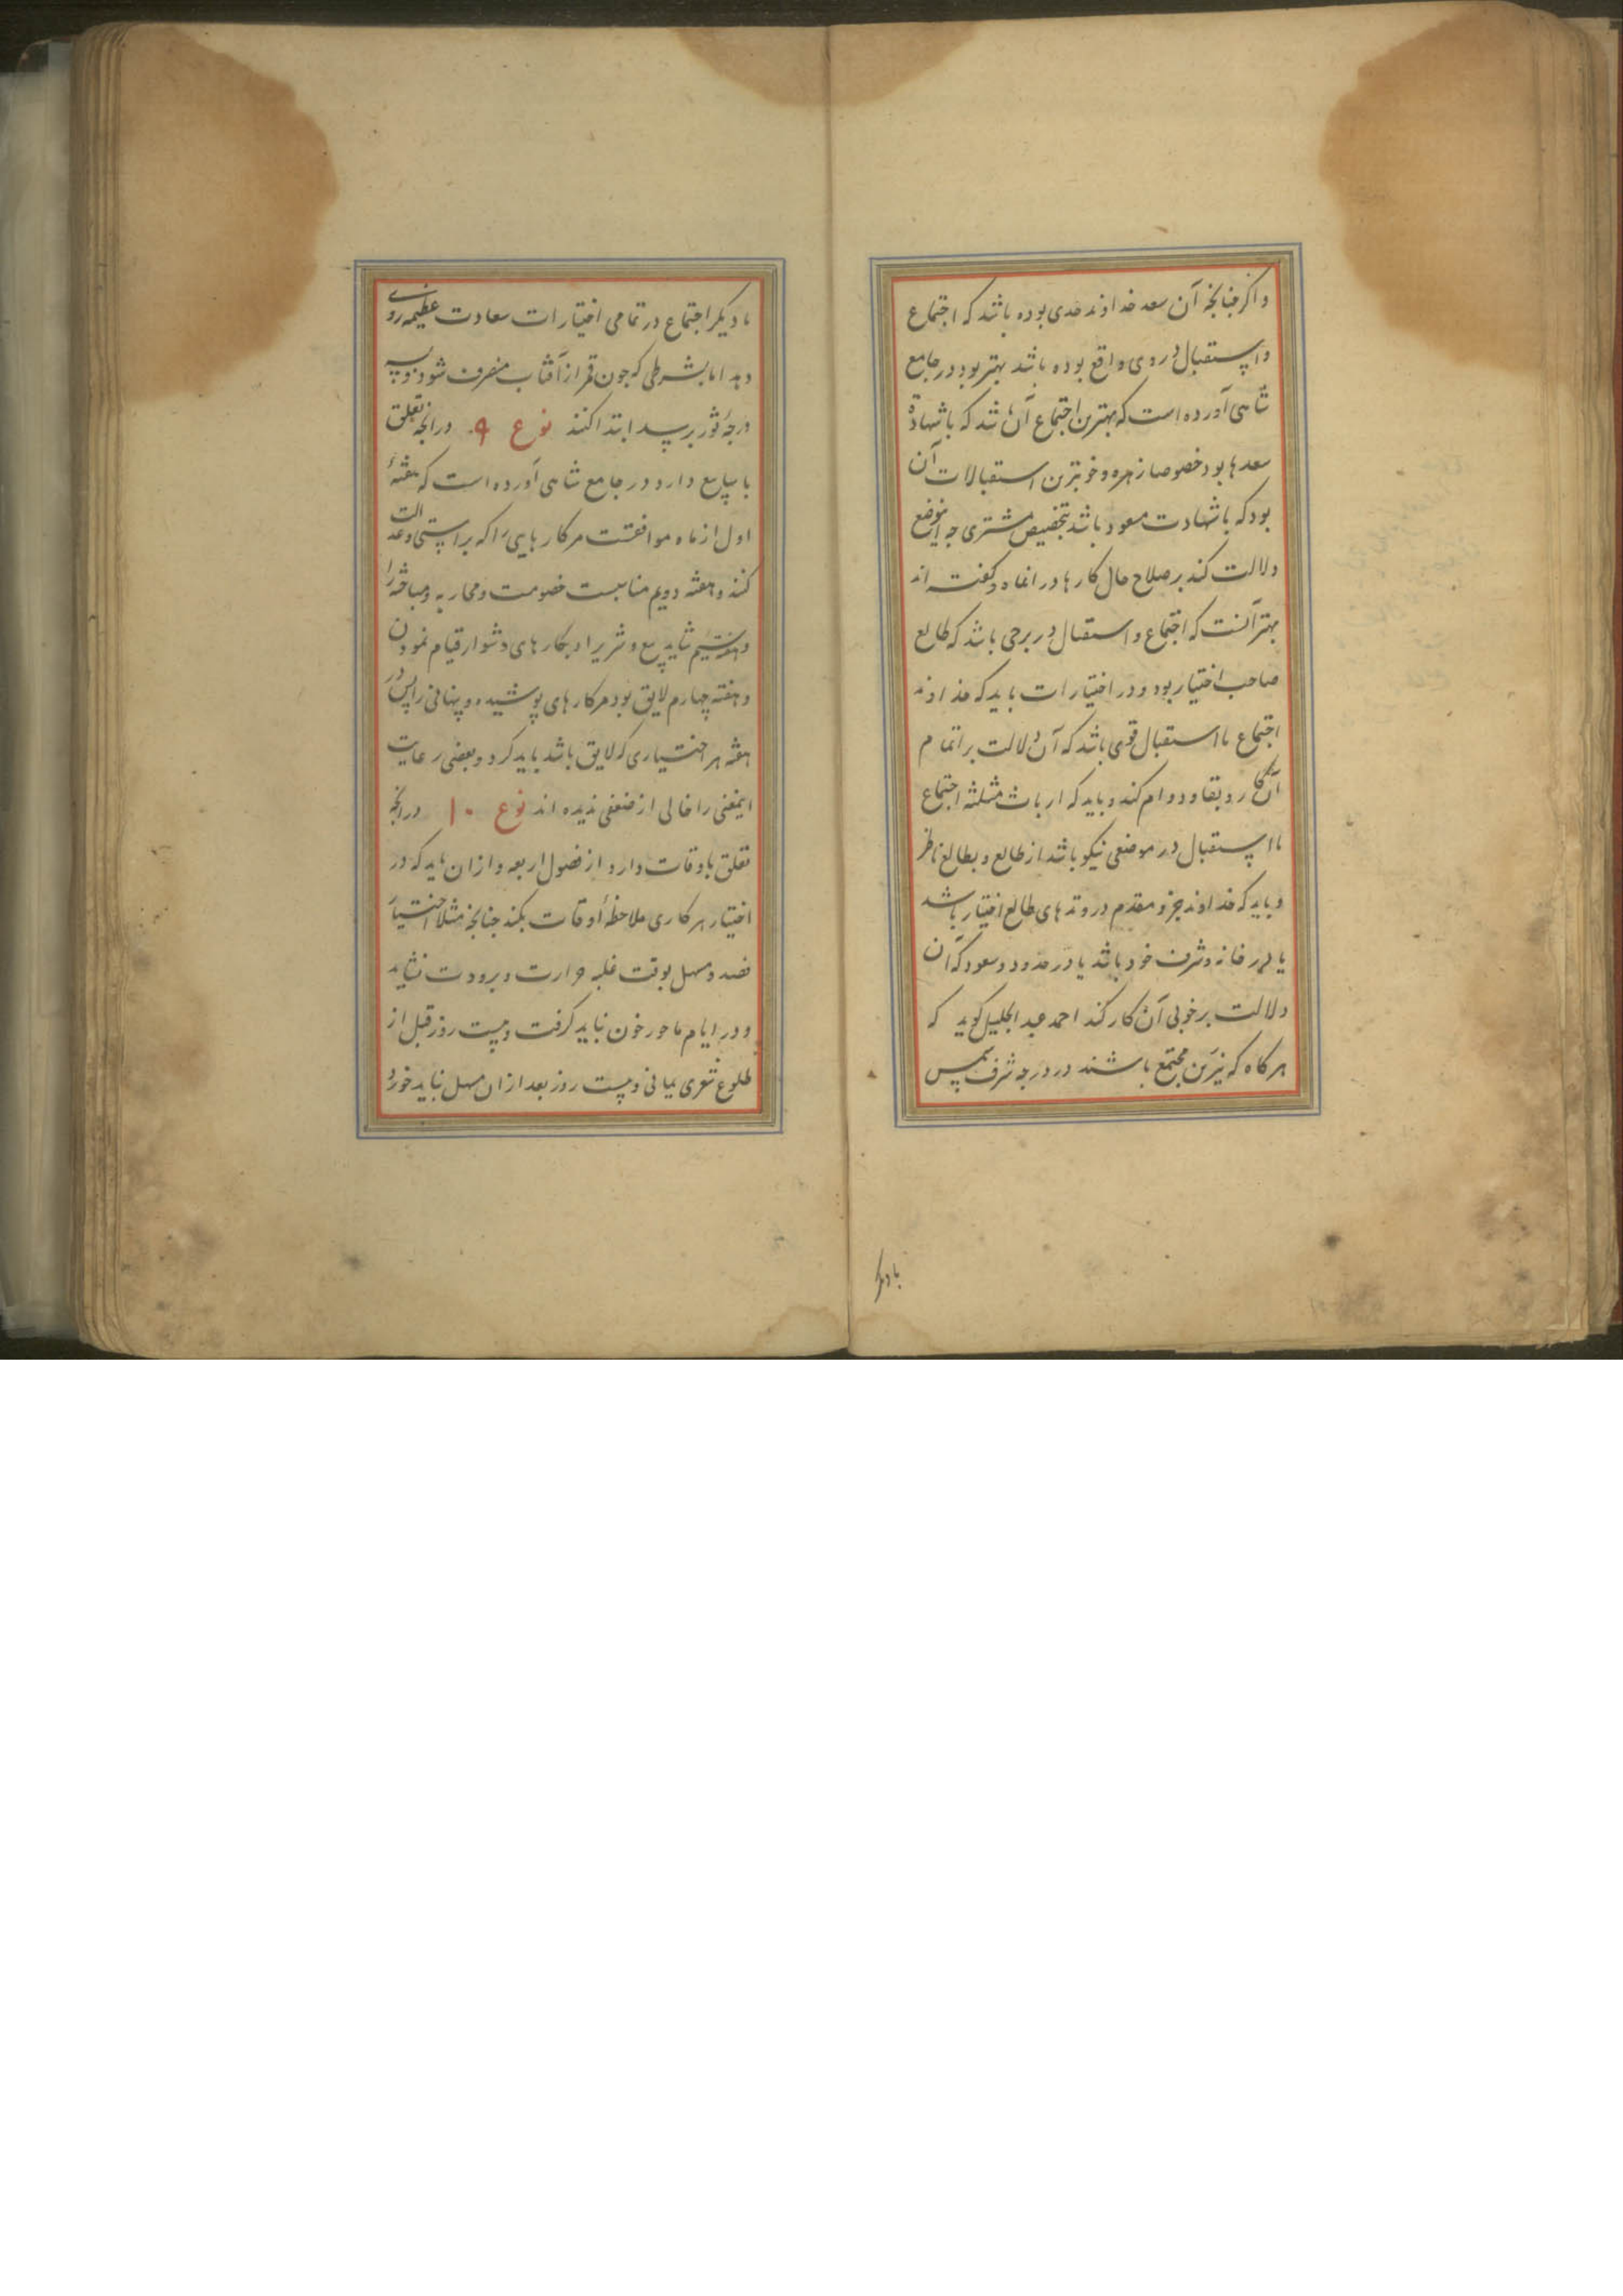 و اگر جنانجه آن سعد خداوند حدی بوده باشد که اجتماع
و استقبال در وی واقع بوده باشد بهتر بود در جامع
شاهی آورده است که بهترین اجتماع آن باشد که باشهادة
سعدها بود خصوصا زهره و خوبترین استقبالات آن
بود که باشهادت سعود باشد بتخصیص مشتری جه این موضع
دلالت کند بر صلاح حال کارها در انماه و کفته اند
بهتر آنست که اجتماع و استقبال در برجی باشد که طالع
صاحب اختیار بود و در اختیارات باید که خداوند
اجتماع یا استقبال قوی باشد که آن دلالت بر اتمام
آن کار و بقا و دوام کند و باید که ارباب مثلثه اجتماع
یا استقبال در موضعی نیکو باشد از طالع و بطالع ناظر
و باید که خداوند جزو مقدم در وتدهای طالع اختیار باشد
یا در خانه و شرف خود باشد یا در حدود سعود که آن
دلالت بر خوبی آن کار کند احمد عبد الجلیل کوید که
هر کاه که نیرین مجتمع باشند در درجه شرف شمس
با دیکر
یا دیکر اجتماع در تمامی اختیارات سعادت عظیمه روی
دهد اما بشرطی که جون قمر از آفتاب منصرف شود و بسه
درجهٔ ثور برسد ابتدا کنند نوع ۹ در انجه تعلق
باسابیع دارد در جامع شاهی آورده است که هفتهٔ
اول از ماه موافقست مر کارهایی را که براستی و عدالت
کنند و هفته دویم مناسبست خصومت و محاربه و مباحثه را
و هفته سیم شاید بیع و شریرا و بکارهای دشوار قیام نمودن
و هفته چهارم لایق بود مر کارهای پوشیده و پنهانی را پس در
هفته هر اختیاری که لایق باشد باید کرد و بعضی رعایت
اینمعنی را خالی از ضعفی ندیده اند نوع ۱۰ در انجه
تعلق باوقات دارد از فصول اربعه و از ان باید که در
اختیار هر کاری ملاحظهٔ اوقات بکند جنانجه مثلا اختیار
فصد و مسهل بوقت غلبه حرارت و برودت نشاید
و در ایام باحور خون نباید کرفت و بیست روز قبل از
طلوع شعری یمانی و بیست روز بعد از ان مسهل نباید خورد